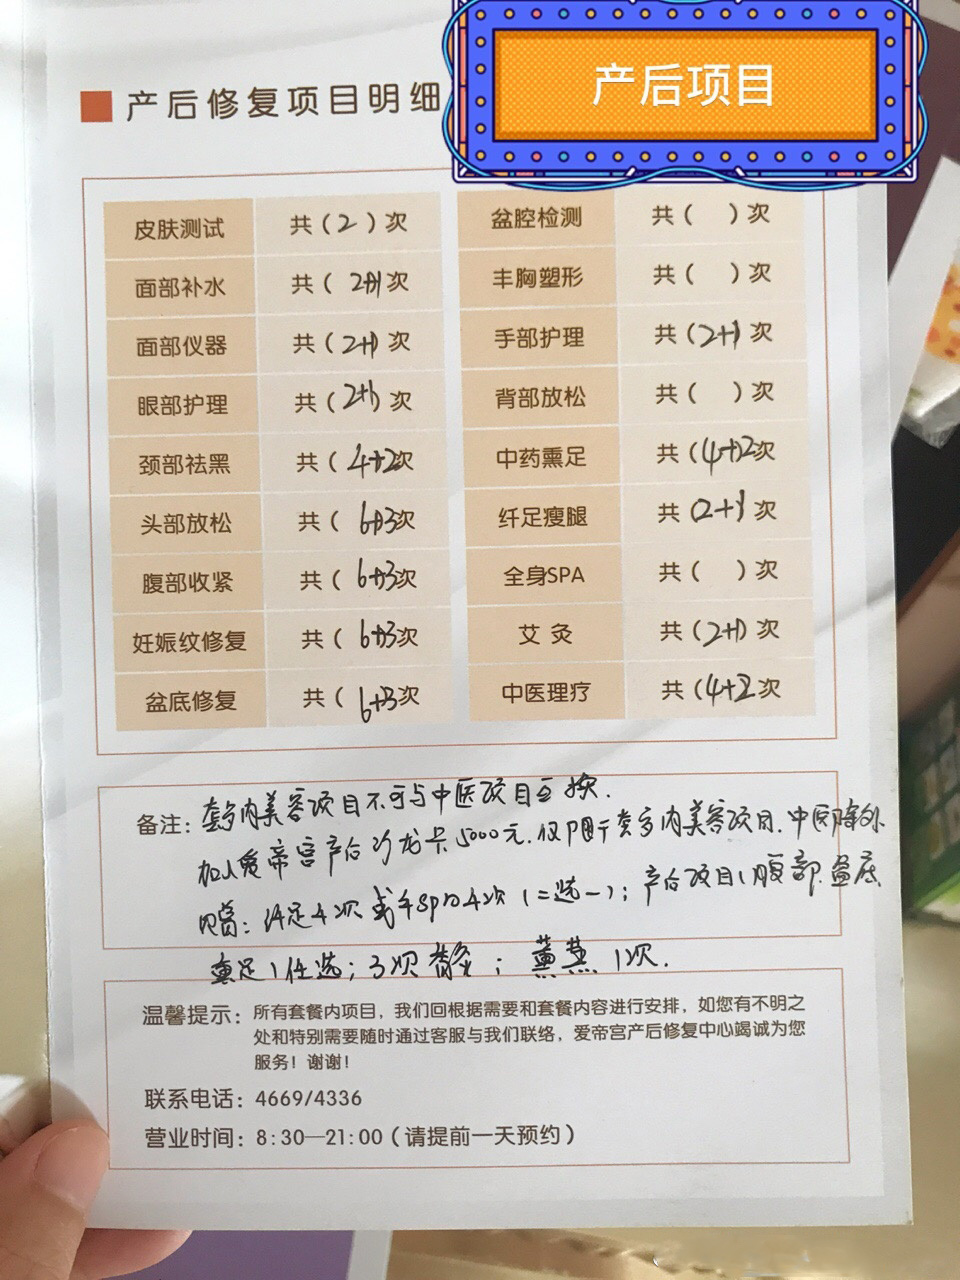 产后项目
产后修复项目明细
皮肤测试 共(2)次 盆腔检测 共( )次
面部补水 共(2+1次 丰胸塑形 共( )次
面部仪器 共(2+1)次 手部护理 共(2+1)次
眼部护理 共(2+1)次 背部放松 共( )次
颈部祛黑 共(4+2次 中药熏足 共(4+2次
头部放松 共(6+3次 纤足瘦腿 共(2+1次
腹部收紧 共(6+3次 全身SPA 共( )次
妊娠纹修复 共(6+3次 艾灸 共(2+1)次
盆底修复 共(6+3次 中医理疗 共(4+2次
备注: 套内美容项目不可与中医项目互换.
加入爱帝宫产后沙龙卡5000元.仅限于套内美容项目.中医除外
足4次或4次(二选一);产后项目(腹部.盆底
熏足)任选;3次;熏蒸1次.
温馨提示:所有套餐内项目,我们回根据需要和套餐内容进行安排,如您有不明之
处和特别需要随时通过客服与我们联络,爱帝宫产后修复中心竭诚为您
服务!谢谢!
联系电话:4669/4336
营业时间:8:30—21:00(请提前一天预约)